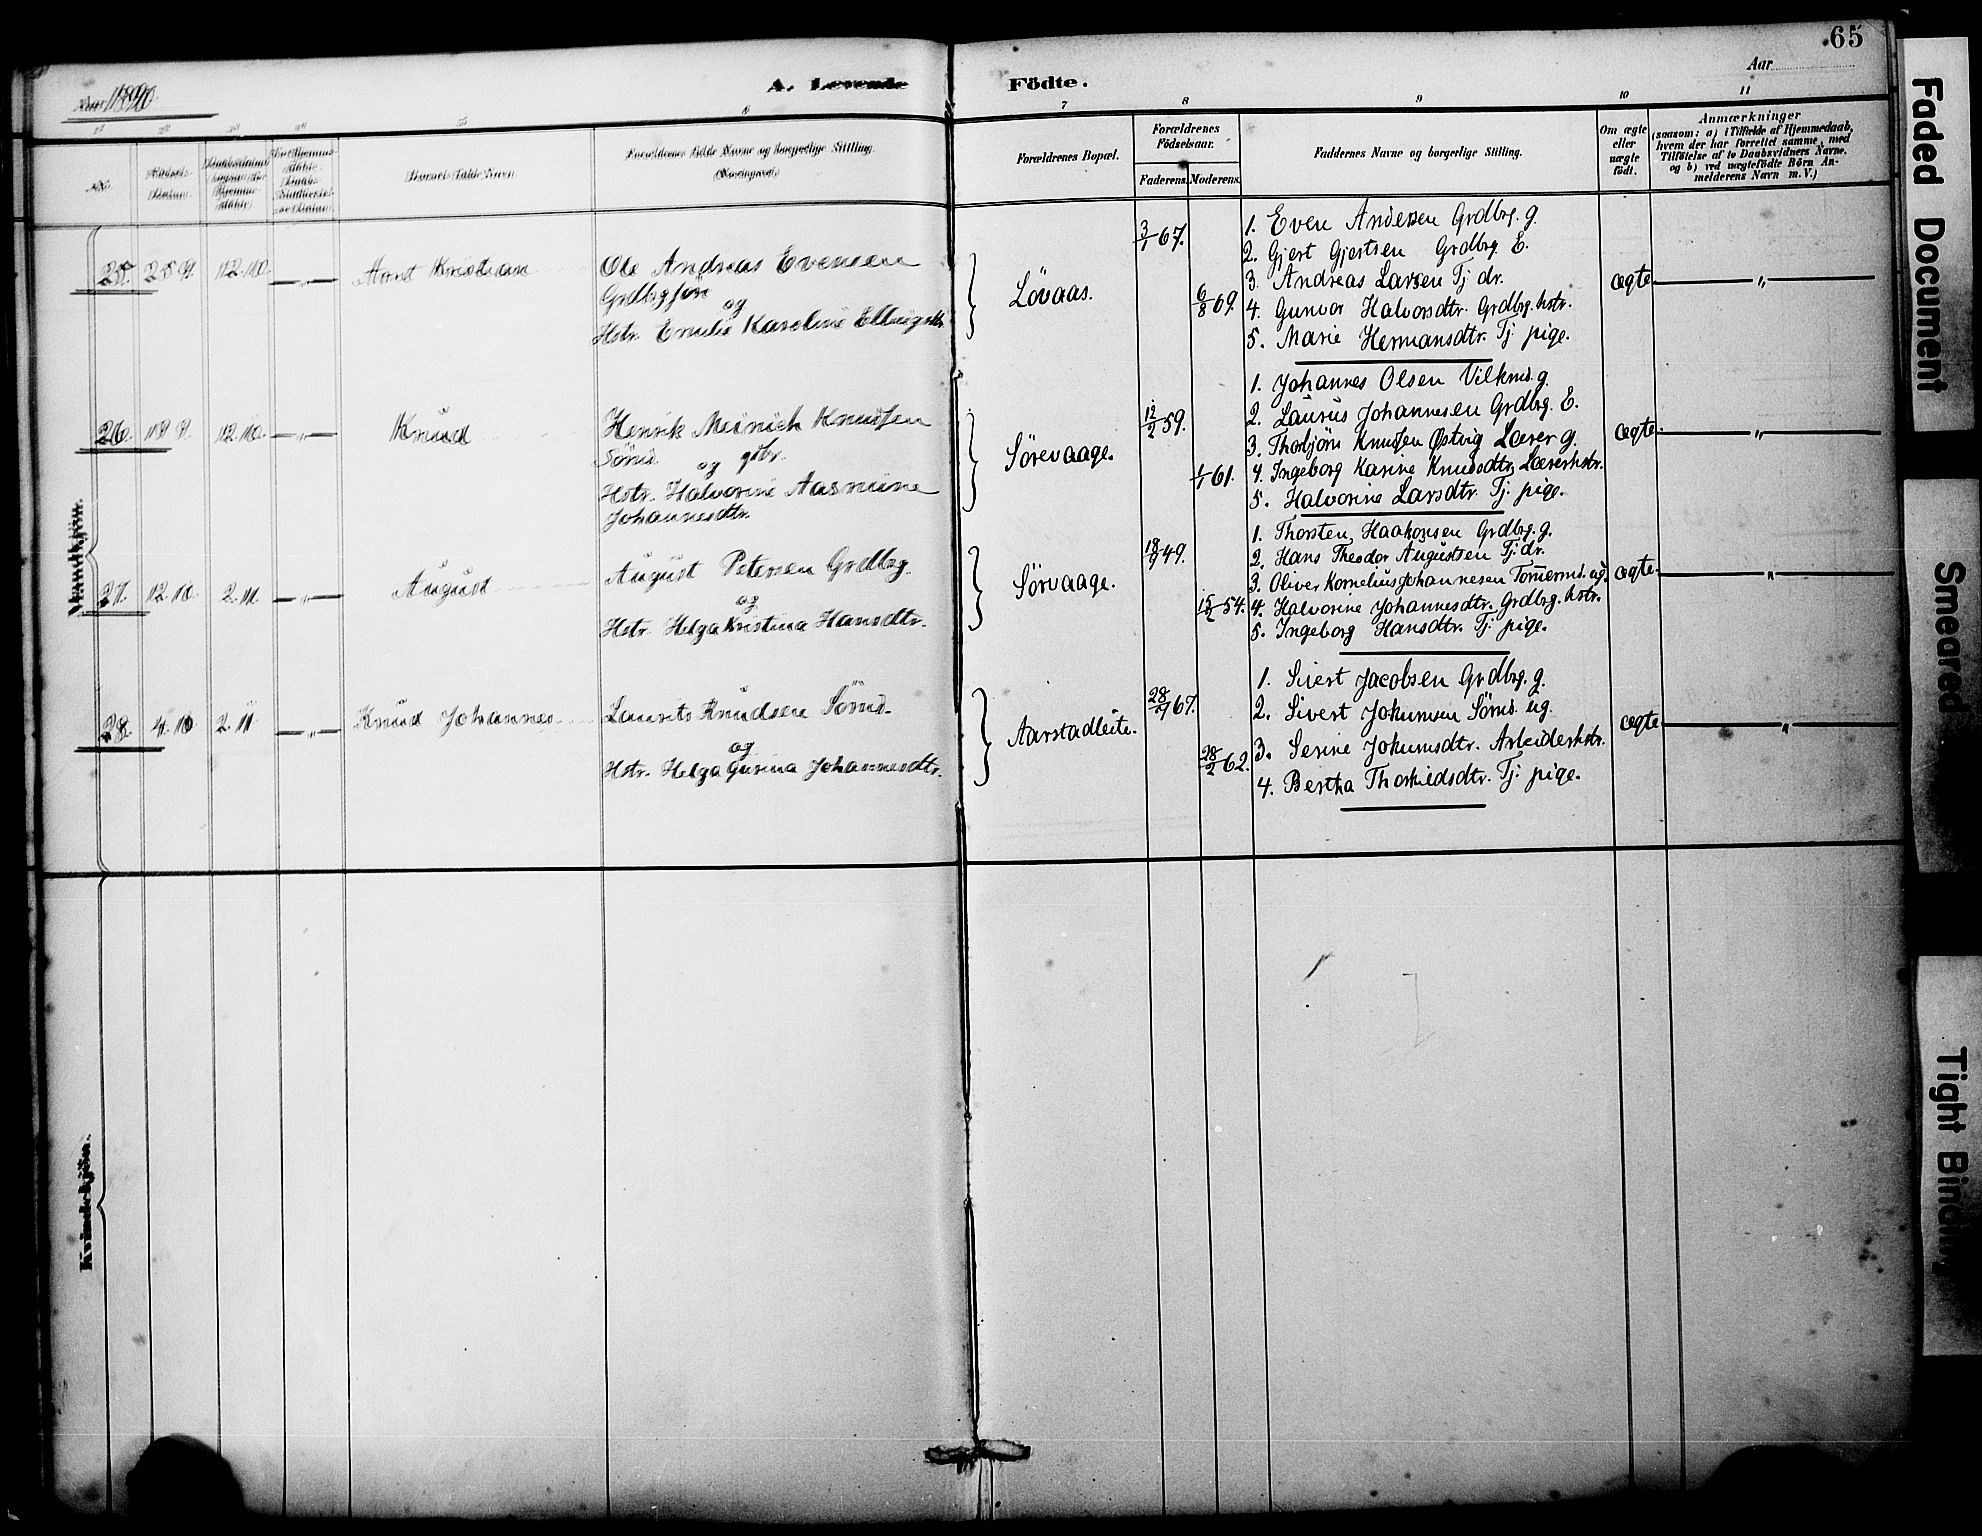 65
Aar 1890.
A. Levende Födte.
Aar
5 6 7 8 9 10 11
No.
Födsels-
Datum.
Barnets fulde Navn
Forældrenes fulde Navne og borgerlige Stilling.
Forældrenes Bopæl.
Forældrenes
Födselsaar.
Faderens.
Moderens.
Faddernes Navne og borgerlige Stilling.
Om ægte
eller
uægte
født.
Anmærkninger
(saasom: a) i Tilfælde af Hjemmedaab,
hvem der har forrettet samme, med
Tilføielse af to Daabsvidners Navne.
og b) ved uægtefödte Börn An-
melderens Navn m. V.)
Mandkjön.
25. 25.9. 12.10. — „ — Arnt Kristian
Ole Andreas Evensen
Grdbrgsøn
og
Hstr. Emilie Karoline Ellingsdtr.
Lövaas.
3/1 67.
6/8 69.
1. Even Andersen Grdbrg. g.
2. Gjert Gjertsen Grdbrg E.
3. Andreas Larsen Tj dr.
4. Gunvor Halvorsdtr. Grdbrg. hstr.
5. Marie Hermansdtr. Tj. pige.
ægte — „ —
26. 19.9. 12.10. — „ — Knud
Henrik Meinich Knudsen
Sömd. gbr.
og
Hstr. Halvorine Aasmine
Johannesdtr.
Sörevaage.
12/2 59.
1/1 61.
1. Johannes Olsen Vilkmd. g.
2. Laurus Johannesen Grdbrg. E.
3. Thorbjörn Knudsen Østvig Lærer g.
4. Ingeborg Karine Knudsdtr. Lærerhstr.
5. Halvorine Larsdtr. Tj. pige.
ægte. — „ —
27. 12.10. 2.11. — „ — August
August Petersen Grdbrg.
og
Hstr. Helga Kristina Hansdtr.
Sörvaage.
18/9 49.
15/2 54.
1. Thorsten Haakonsen Grdbrg. g.
2. Hans Theodor Augustsen Tj. dr.
3. Oliver Kornelius Johannesen Tömermd. ug.
4. Halvorine Johannesdtr. Grdbrg. hstr.
5. Ingeborg Hansdtr. Tj. pige.
ægte. — „ —
28. 4.10 2.11 — „ — Knud Johannes
Laurits Knudsen Sömd.
og
Hstr. Helga Gurina Johannesdtr.
Aarstadleite.
28/9 67.
28/2 62.
1. Sivert Jacobsen Grdbrg. g.
2. Sivert Johumsen Sömd. ug.
3. Serine Johumsdtr. Arbeiderhstr.
4. Bertha Thorkildsdtr. Tj. pige.
ægte — „ —
Kvindekjön.
Faded Document
Smeared
Tight Bindin